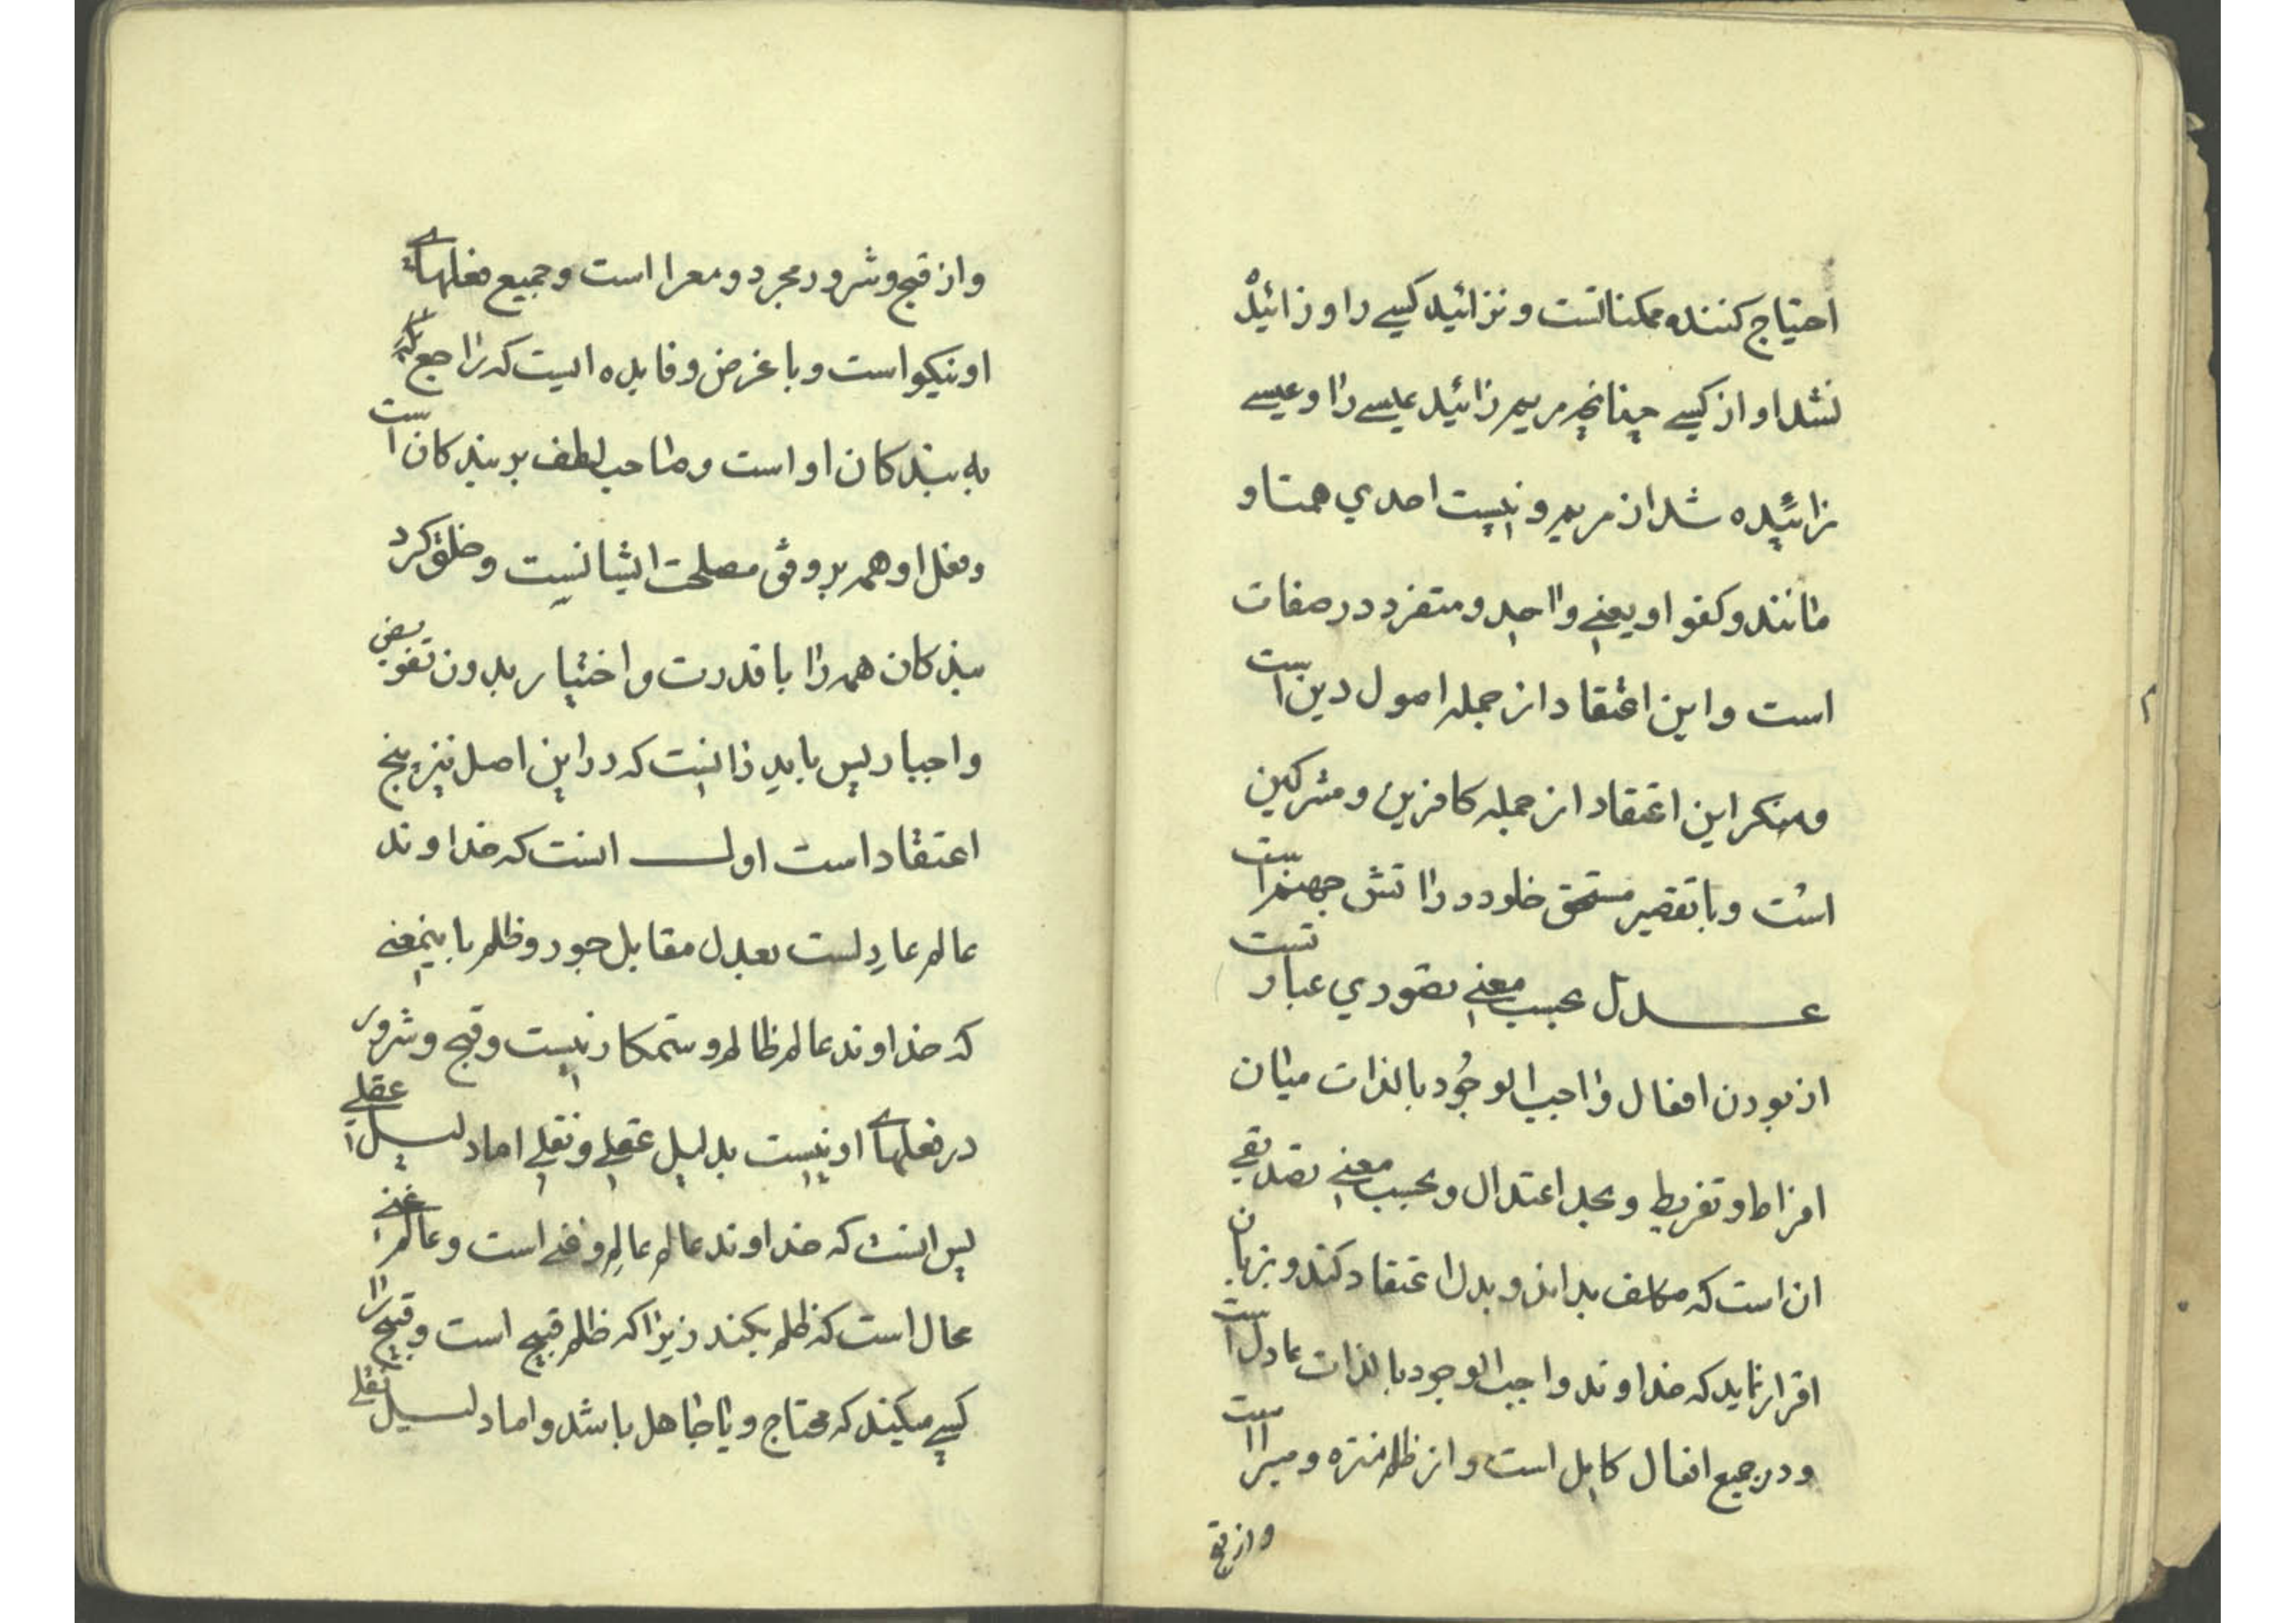 احتیاج کننده ممکناتست و نزائید کسی را و زائیده
نشد او از کسی چنانچه مریم زائید عیسی را و عیسی
زائیده شد از مریم و نیست احدی همتا و
مانند و کفو او یعنی واحد و متفرد در صفات
است و این اعتقاد از جمله اصول دین است
و منکر این اعتقاد از جمله کافرین و مشرکین
است و با تقصیر مستحق خلود در اتش جهنم است
عدل بحسب معنی تصوری عبارتست
از بودن افعال واجب الوجود بالذات میان
افراط و تفریط و بحد اعتدال و بحسب معنی تصدیقی
ان است که مکلف بداند و بدل اعتقاد کند و بزبان
اقرار نماید که خداوند واجب الوجود بالذات عادل است
و در جمیع افعال کامل است و از ظلم منزه و مبرا است
و از قبح
و از قبح و شرور مجرد و معرا است و جمیع فعلهای
او نیکو است و با غرض و فایده ایست که راجع
به بندکان او است و صاحب لطف بر بندکان است
و فعل او همه بر وفق مصلحت ایشانست و خلق کرد
بندکان همه را با قدرت و اختیار بدون تفویض
و اجبار پس باید دانست که در این اصل نیز پنج
اعتقاد است اول انست که خداوند
عالم عادلست بعدل مقابل جور و ظلم باینمعنی
که خداوند عالم ظالم و ستمکار نیست و قبح و شرور
در فعلهای او نیست بدلیل عقلی و نقلی اما دلیل عقلی
پس انست که خداوند عالم عالم و غنی است و عالم غنی
محال است که ظلم بکند زیرا که ظلم قبیح است و قبیح را
کسی میکند که محتاج و یا جاهل باشد و اما دلیل نقلی